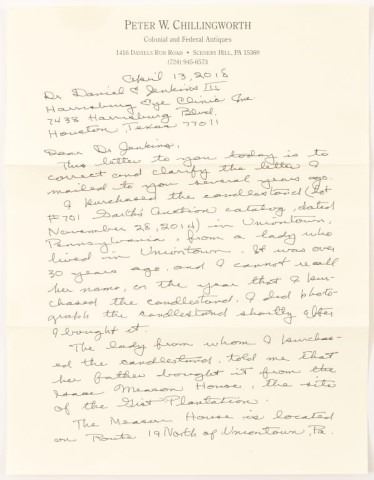 PETER W. CHILLINGWORTH
Colonial and Federal Antiques
1416 DANIELS RUN ROAD • SCENERY HILL, PA 15360
(724) 945-6573
April 13, 2018
Dr Daniel E Jenkins III
Harrisburg Eye Clinic Inc
7438 Harrisburg Blvd.
Houston, Texas 77011
Dear Dr Jenkins,
This letter to you today is to
correct and clarify the letter I
mailed to you several years ago.
I purchased the candlestand (Lot
#701 Garth's Auction catalog, dated
November 28, 2014) in Uniontown,
Pennsylvania, from a lady who
lived in Uniontown. It was over
30 years ago, and I cannot recall
her name, or the year that I pur-
chased the candlestand. I did photo-
graph the candlestand shortly after
I bought it.
The lady from whom I purchas-
ed the candlestand, told me that
her father bought it from the
Isaac Meason House, the site
of the Gist Plantation.
The Meason House is located
on Route 19 North of Uniontown, Pa.